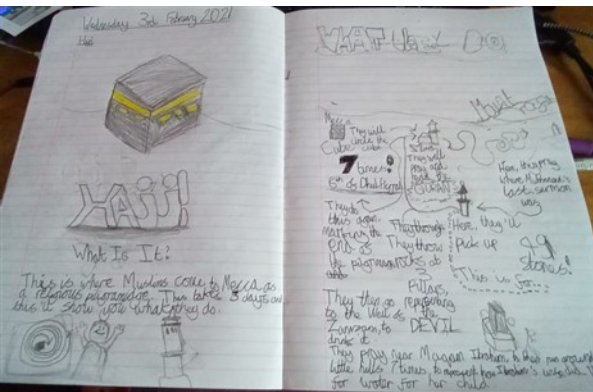 Wednesday 3rd February 2021
HAJJ!
What Is It?
This is where Muslims come to Mecca as
a religious pilgrimadge. This takes 5 days and
this'll show you what they do.
WHAT They Do
Mount
Mecca
They will
circle the
Cube
7
times!
8th of Dhul-Hijjah
They will
pray and
read the
QURAN
Here, they pray
where Muhammad's
last sermon
was
They do
this again,
marking the
end of
the pilgrimage
They throw
rocks at
3
Pillars,
representing
the
DEVIL
Here, they'll
Pick up
49
Stones!
This is for...
They then go
to the Well of
Zamzam, to
drink it
They pray near Maqam Ibrahim, to then run around
little hills 7 times, to represent how Ibrahim's wife did
for water for her child